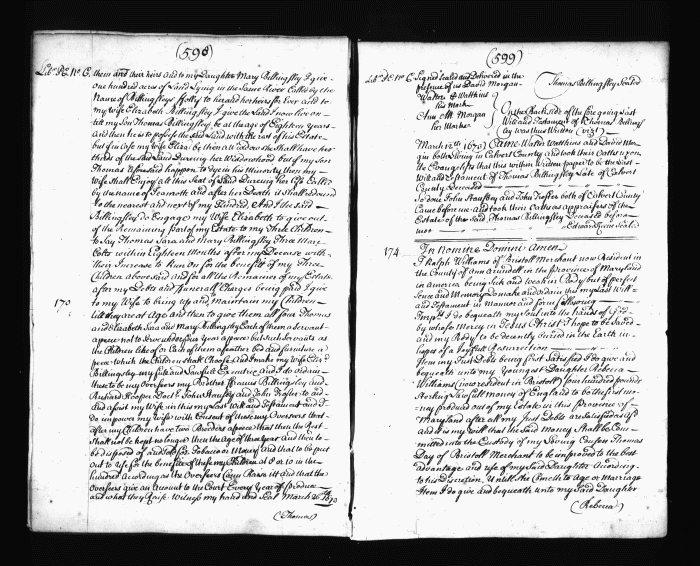 (598)
them and their heirs and to my Daughter Mary Billingsley I give
one hundred acres of Land Lying in the Same River Called by the
Name of Billingsleys folly to her and her heirs for Ever and to
my wife Elizabeth Billingsley I give the Land I now live on
till my Son Thomas Billingsley be at the age of Eighteen years
And then he is to possess the Land with the rest of his Estate
but in case my wife be then a Widdow she shall have her
thirds of the Land Dureing her Widdowhood but if my Son
Thomas should happen to dye in his Minority then my
Wife shall Enjoy all this Seat of Land Dureing her life Called
by the name of and after her Death it shall descend
to the nearest and next of my Kindred, And I the Said
Billingsley do Engage my Wife Elizabeth to give out
of the Remaining Part of my Estate to my Three Children
to Say Thomas Sara and Mary Billingsley Three Mare
Colts within Eighteen Months after my Decease with
their Increase to Run on for the benefitt of my Three
Children above and as for all the Remains of my Estate
after my Debts and funerall Charges being paid I give
170
to my Wife to bring up and Maintain my Children
till they are of Age and then to give them all four Thomas
and Elizabeth Sara and Mary Billingsley Each of them a Servant
apiece not to Serve above four years apiece but such Servants as
the Children like of or Each of them a feather bed and furniture a
piece which the Children shall Choose And I make my Wife Eliz:
Billingsley my full and Lawfull Executrix and I do ordain
these to be my Overseers my Brothers Francis Billingsley and
Richard Hooper Doct:r John Stansley and John Troster to aid
and assist my Wife in this my Last Will and Testament and I
do impower my Wife with Consent of these my Overseers that
after my Children have two Breeders apiece that then the Rest
shall not be kept no longer then the age of three year and then to
be disposed of and sold for Tobacco or Money and that to be put
out to Use for the benefitt of these my Children at 8 or 10 in the
hundred According as the Overseers Can Raise it and that the
Overseers give an Account to the Court Every Year of the produce
and what they Raise Witness my hand and Seal March 26th 1670
(Thomas)
(599)
Signed Sealed and Delivered in the
presence of us David Morgan
Walter Watkins
his Mark
Ann M Morgan
her Marke
Thomas Billingsley Sealed
On the Back side of the fore going Last
Will and Testament of Thomas Billingsley
was thus Written (vizt)
Came Walter Watkins and David Mor-
gin both living in Calvert County and took their Oathes upon
the Evangelists that this within Written paper to be the Last
Will and Testament of Thomas Billingsley Late of Calvert
County Deceased
John Stansley and John Troster both of Calvert County
Came before me and took their Oath as appraisers of the
Estate of the Said Thomas Billingsley Deceased before
mee
174
In Nomine Domini Amen
I Ralph Williams of Bristoll Merchant now Resident in
the County of Ann Arundell in the province of Maryland
in America being Sick and weak in Body but of perfect
Sence and Memory do make and ordaine this my Last Will
and Testament in Manner and form following
Imp:rs I do bequeath my Soul into the hands of God
by whose Mercy in Jesus Christ I hope to be Saved
and my Body to be decently buried in the Earth in
hopes of a Joyfull Resurrection
Item my Just Debts being first Satisfied I do give and
bequeath unto my Youngest Daughter Rebecca
Williams (now resident in Bristoll) four hundred pounds
Sterling Lawfull money of England to be the first mo-
ney produced out of my Estate in this Province of
Maryland after all my Just Debts are Satisfied as afd
And it is my will that the Said Money shall be Com-
mitted into the Custody of my Loving Cousen Thomas
Day of Bristoll Merchant to be improved to the best
advantage and use of my Said Daughter According
to his discretion Untill She Come to Age or Marriage
Item I do give and bequeath unto my Said Daughter
(Rebecca)